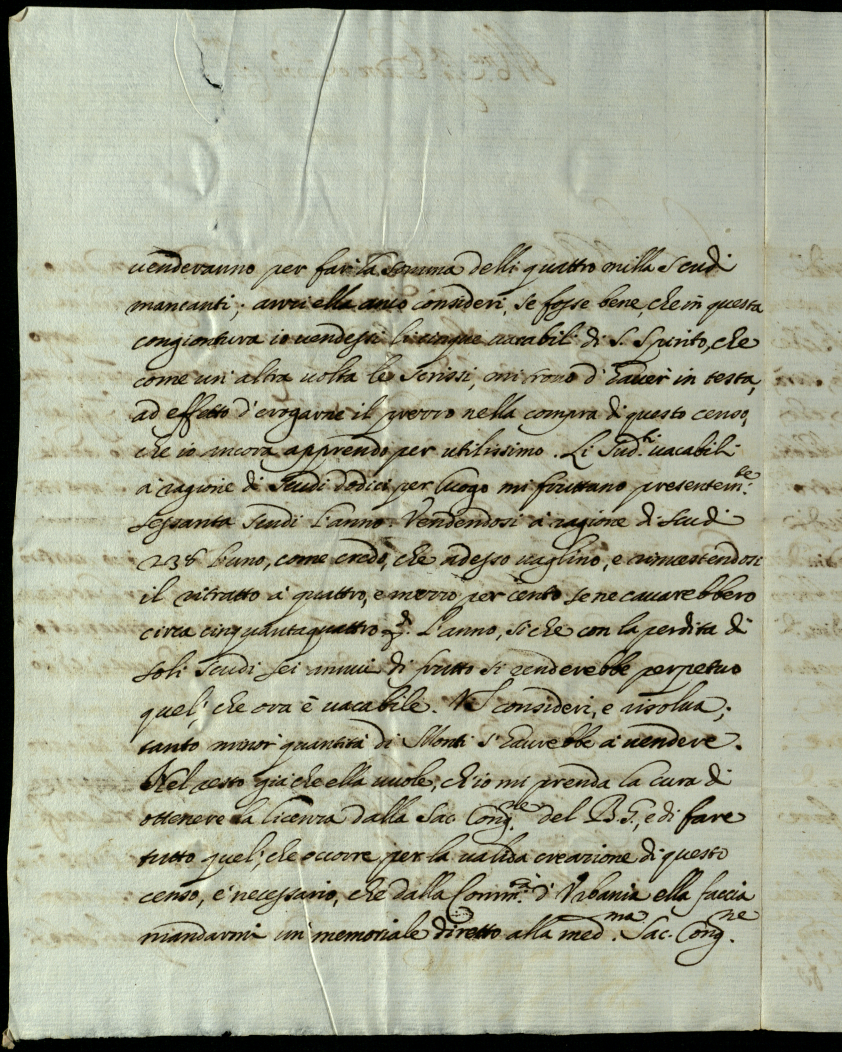 venderanno per far la somma delli quattro milla Scudi
mancanti; avvi ella anco consideri, se fosse bene, che in questa
congiontura io vendessi li cinque vacabili di S. Spirito, che
come un' altra volta le scrissi, mi trovo d' haver in testa,
ad effetto d' erogarne il prezzo nella compra di questo censo,
che io ancora apprendo per utilissimo. Li Sud.ti vacabili
a ragione di Scudi dodici per luogo mi fruttano presentem.te
sessanta Scudi l'anno. Vendendosi a ragione di Scudi
238 l'uno, come credo, che adesso vaglino, e rinvestendosi
il ritratto a quattro, e mezzo per cento se ne cavarebbero
circa cinquantaquattro l'anno, si che con la perdita di
soli Scudi sei annui di frutto si renderebbe perpetuo
quel' che ora è vacabile. VS consideri, e risolva;
tanto minor quantità di Monti s' haverebbe a vendere.
Nel resto già che ella vuole, ch'io mi prenda la cura di
ottenere la licenza dalla Sac. Cong.ne del B. G., e di fare
tutto quel', che occorre per la valida creazione di questo
censo, è necessario, che dalla Comm.tà d' Urbania ella faccia
mandarmi un memoriale diretto alla med.ma Sac. Cong.ne